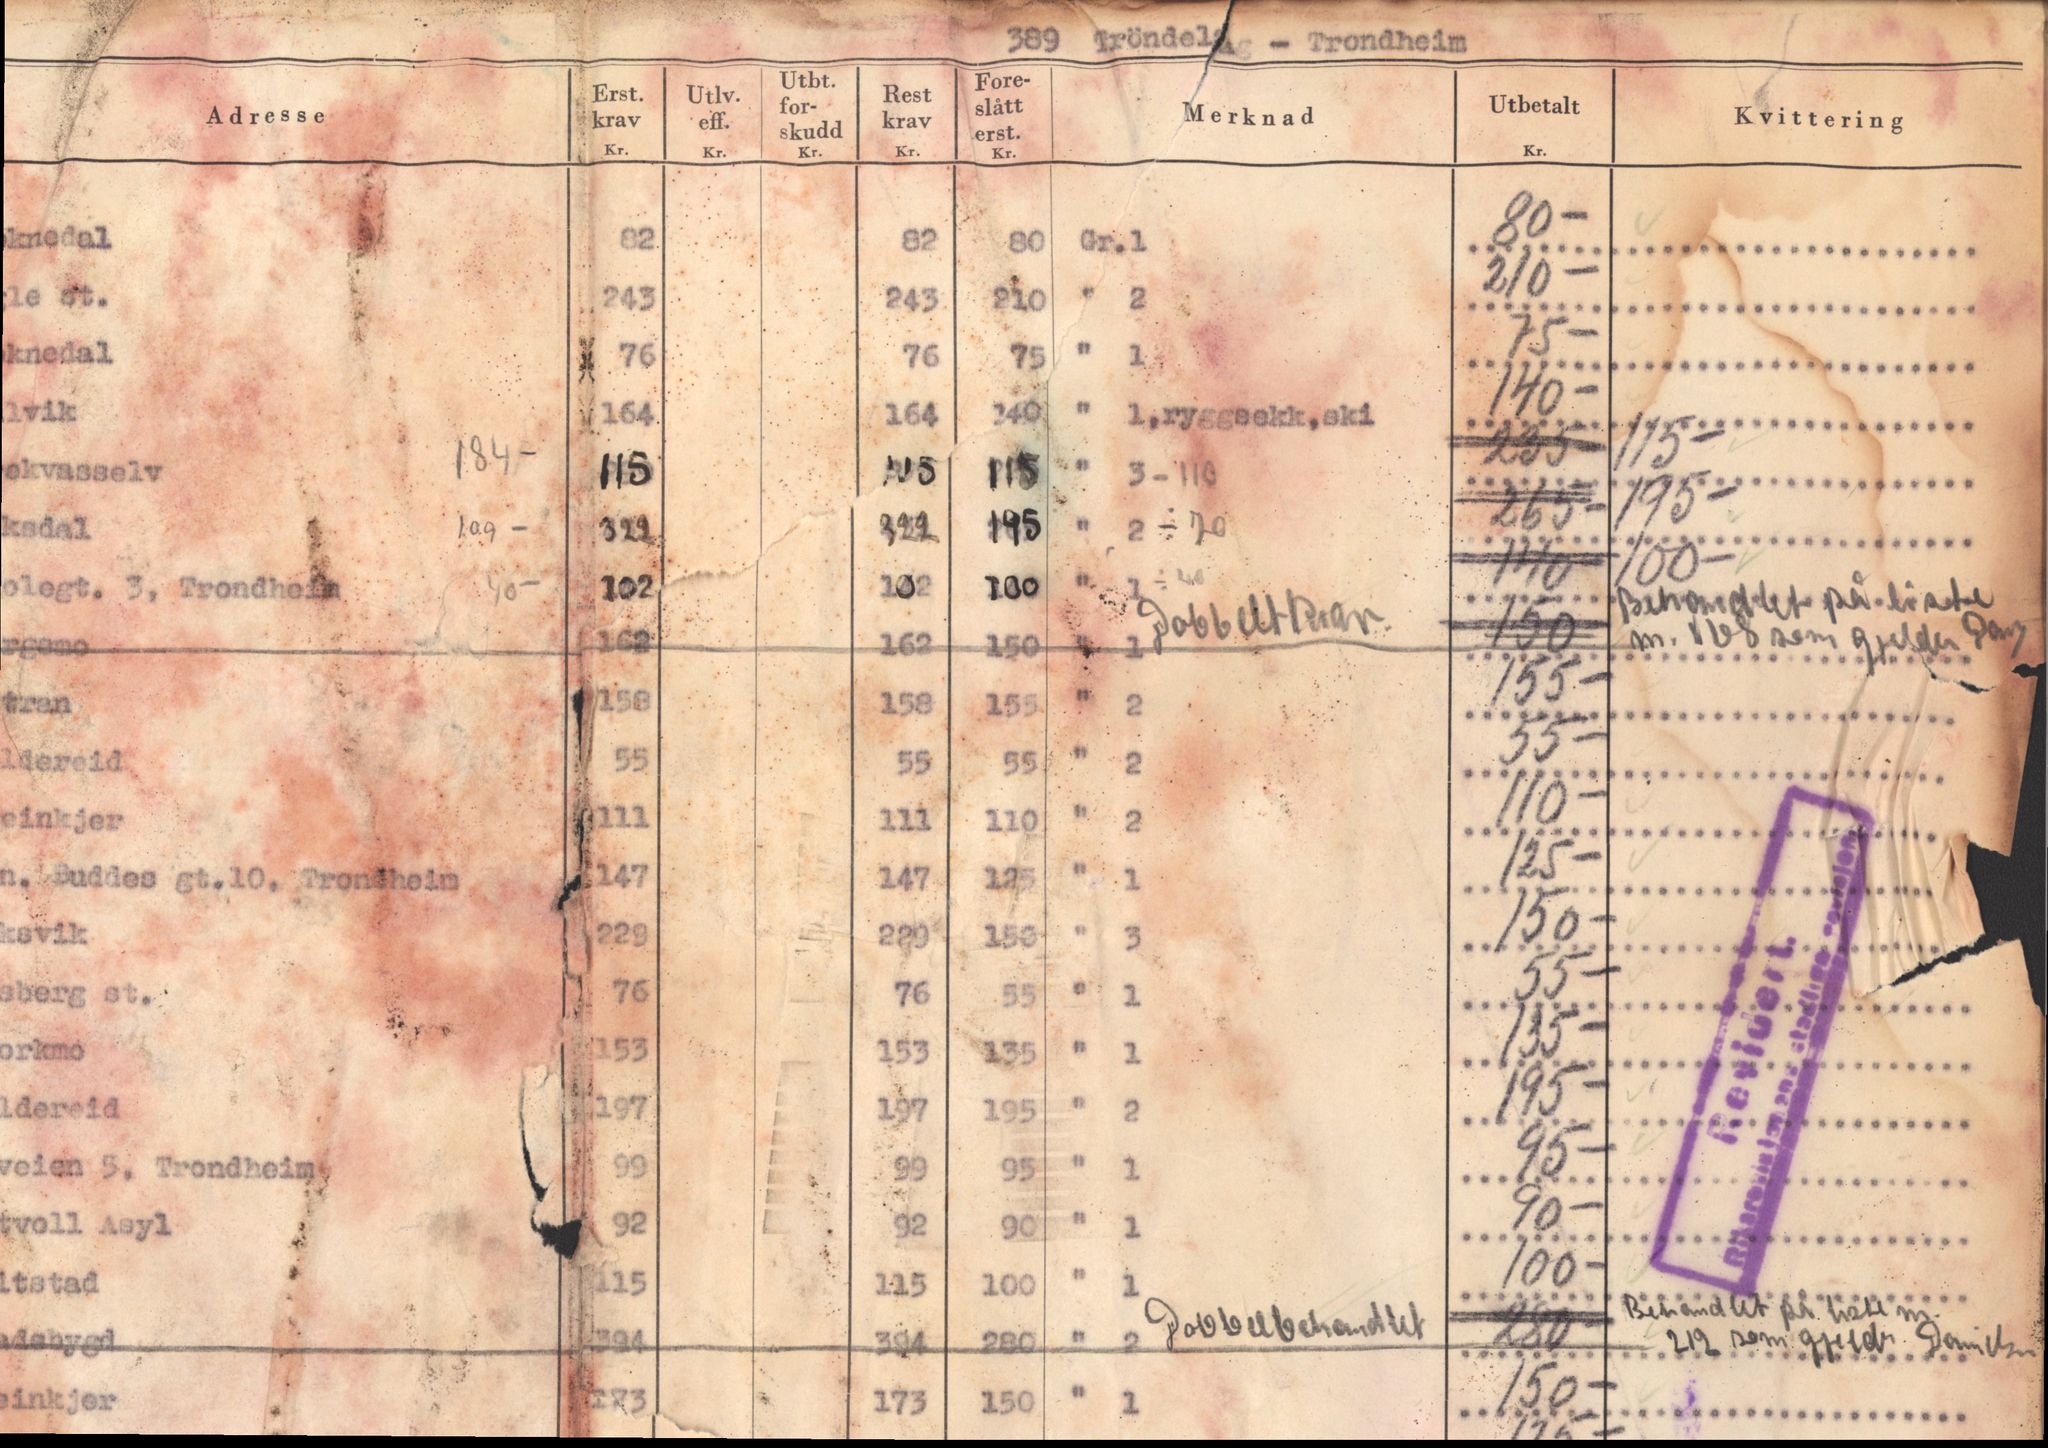 389 Tröndelag - Trondheim
Adresse Erst. krav Kr. Utlv. eff. Kr. Utbt. for-skudd Kr. Rest krav Kr. Fore-slått erst. Kr. Merknad Utbetalt Kr. Kvittering
oknedal 82 82 80 Gr.1 80-
gle st. 243 243 210 " 2 210-
oknedal 76 76 75 " 1 75-
lvik 164 164 140 " 1,ryggsekk,ski 140-
ekvasselv 184- 115 115 115 " 3 - 110 235- 115-
ksdal 109- 195 " 2 ÷ 70 265- 195-
olegt. 3, Trondheim 40- 102 102 100 " 1 ÷ 40 140 100-
rgsmo 162 162 150 " 1 Dobbeltkrav. 150 Behandlet på liste
m. 168 som gjelder
tran 158 158 155 " 2 155-
ldereid 55 55 55 " 2 55-
einkjer 111 111 110 " 2 110-
n. Buddes gt.10, Trondheim 147 147 125 " 1 125-
ksvik 229 229 150 " 3 150-
sberg st. 76 76 55 " 1 55-
orkmo 153 153 135 " 1 135-
ldereid 197 197 195 " 2 195-
veien 5, Trondheim 99 99 95 " 1 95-
tvoll Asyl 92 92 90 " 1 90-
ltstad 115 115 100 " 1 100-
adsbygd 394 394 280 " 2 Dobbelbehandlet 280- Behandlet på liste m.
212 som gjeldr
einkjer 173 173 150 " 1 150-
Revidert.